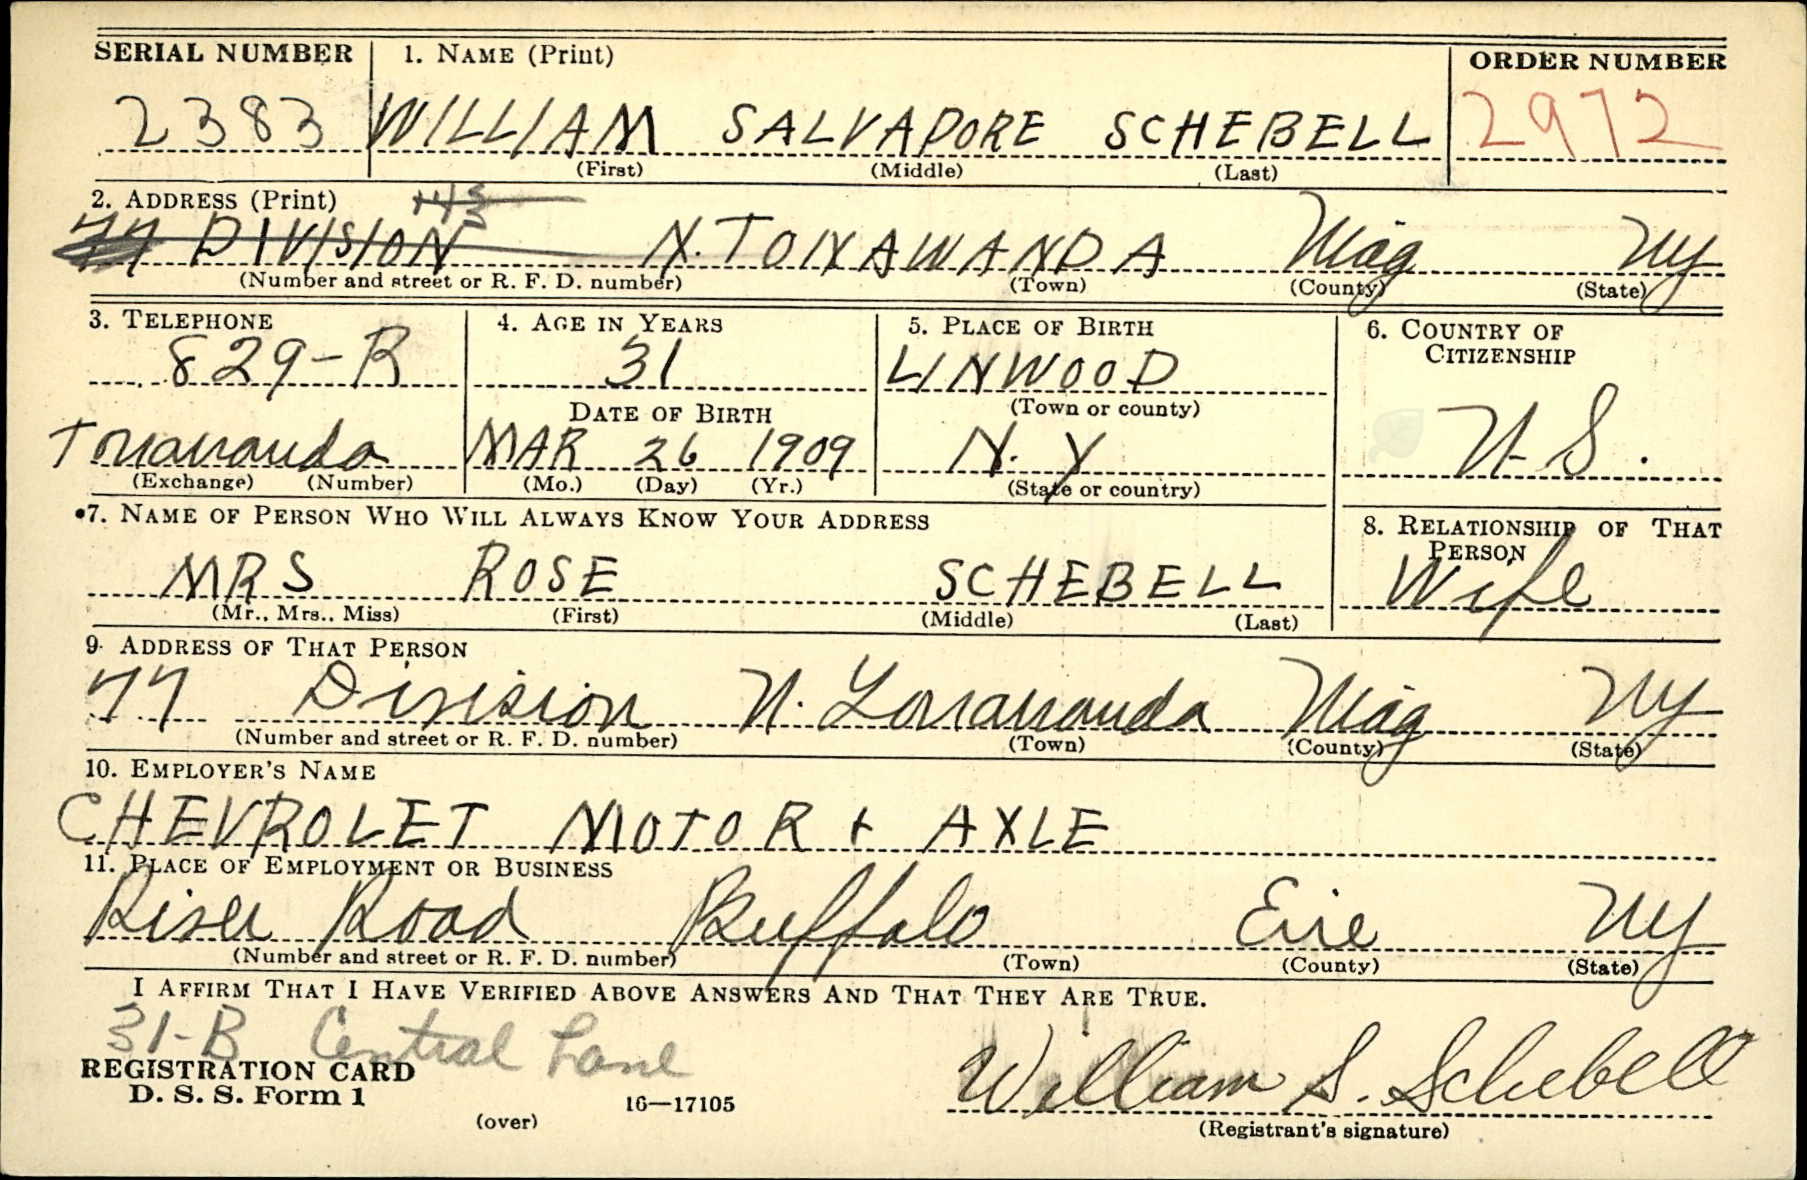 SERIAL NUMBER 1. NAME (Print) ORDER NUMBER
2383 WILLIAM SALVADORE SCHEBELL 2972
(First) (Middle) (Last)
2. ADDRESS (Print) 145
77 DIVISION N. TONAWANDA Niag NY
(Number and street or R. F. D. number) (Town) (County) (State)
3. TELEPHONE 4. AGE IN YEARS 5. PLACE OF BIRTH 6. COUNTRY OF CITIZENSHIP
829-R 31 LINWOOD
DATE OF BIRTH (Town or county)
Tonawanda MAR 26 1909 N. Y U.S.
(Exchange) (Number) (Mo.) (Day) (Yr.) (State or country)
7. NAME OF PERSON WHO WILL ALWAYS KNOW YOUR ADDRESS 8. RELATIONSHIP OF THAT PERSON
MRS ROSE SCHEBELL Wife
(Mr., Mrs., Miss) (First) (Middle) (Last)
9. ADDRESS OF THAT PERSON
77 Division N. Tonawanda Niag NY
(Number and street or R. F. D. number) (Town) (County) (State)
10. EMPLOYER'S NAME
CHEVROLET MOTOR & AXLE
11. PLACE OF EMPLOYMENT OR BUSINESS
River Road Buffalo Erie NY
(Number and street or R. F. D. number) (Town) (County) (State)
I AFFIRM THAT I HAVE VERIFIED ABOVE ANSWERS AND THAT THEY ARE TRUE.
31-B Central Lane
REGISTRATION CARD William S. Schebell
D. S. S. Form 1 16—17105
(over) (Registrant's signature)